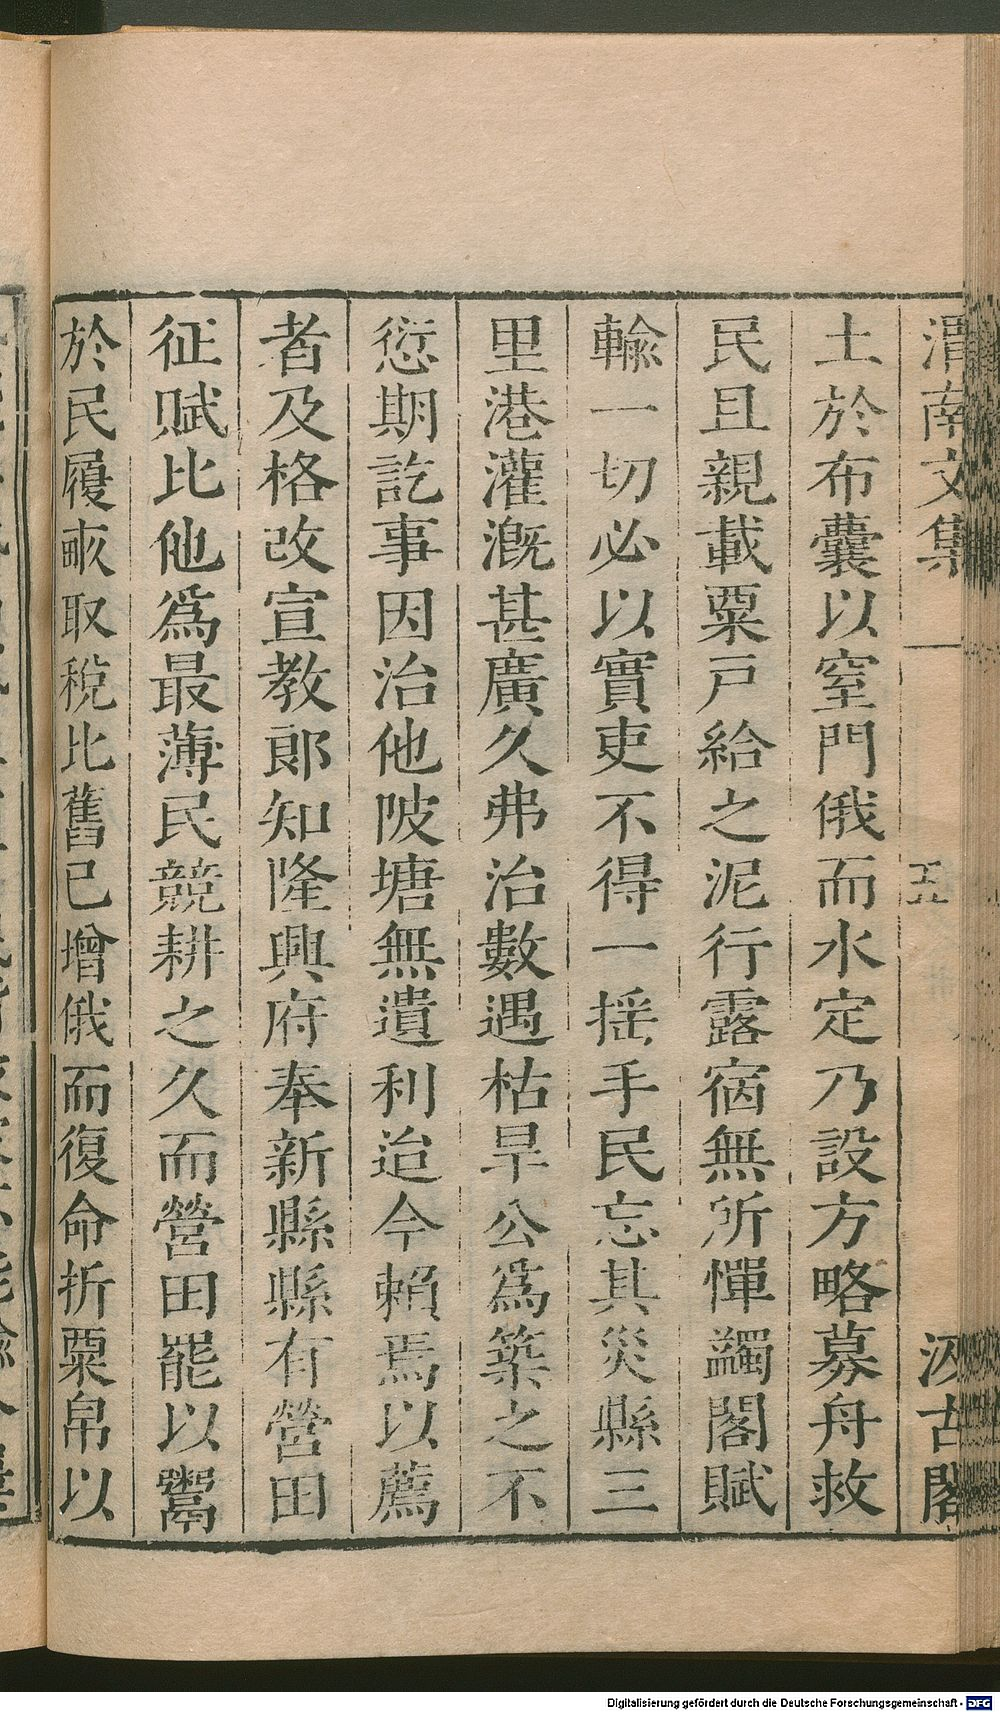 渭南文集
五
汲古閣
土於布囊以窒門俄而水定乃設方略募舟救
民且親載粟戸給之泥行露宿無所憚蠲閣賦
輸一切必以實吏不得一揺手民忘其災縣三
里港灌溉甚廣久弗治數遇枯旱公爲築之不
愆期訖事因治他陂塘無遺利迨今賴焉以薦
者及格改宣教郎知隆興府奉新縣縣有營田
征賦比他爲最薄民競耕之久而營田罷以鬻
於民履畝取稅比舊已增俄而復命折粟帛以
Digitalisierung gefördert durch die Deutsche Forschungsgemeinschaft - DFG